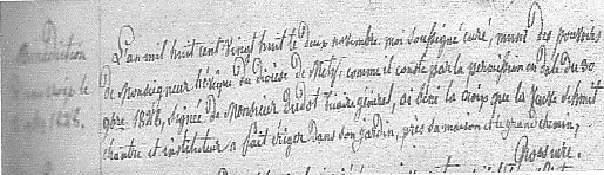 Bénédiction
L'an mil huit cent vingt huit le deux novembre, moi soussigné curé, muni des pouvoirs
de Monseigneur l'évêque du diocèse de Metz, comme il conste par la permission en date du 30
9bre 1828, signée de Monsieur vicaire général, ai béni la croix que la
chantre et instituteur a fait ériger dans son jardin, près du maison et le grand chemin,